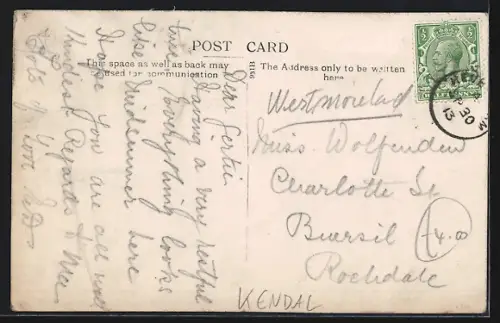 POST CARD
This space as well as back may
be used for communication
The Address only to be written
here
Dear Gertie
Having a very restful
time Everything looks
like Midsummer here
Hope you are all well
Kindest Regards to Mee
Lots of
love
Westmoreland
Miss Wolfenden
Charlotte St
Buersil
Rochdale
4.00
KENDAL
AP 30
13